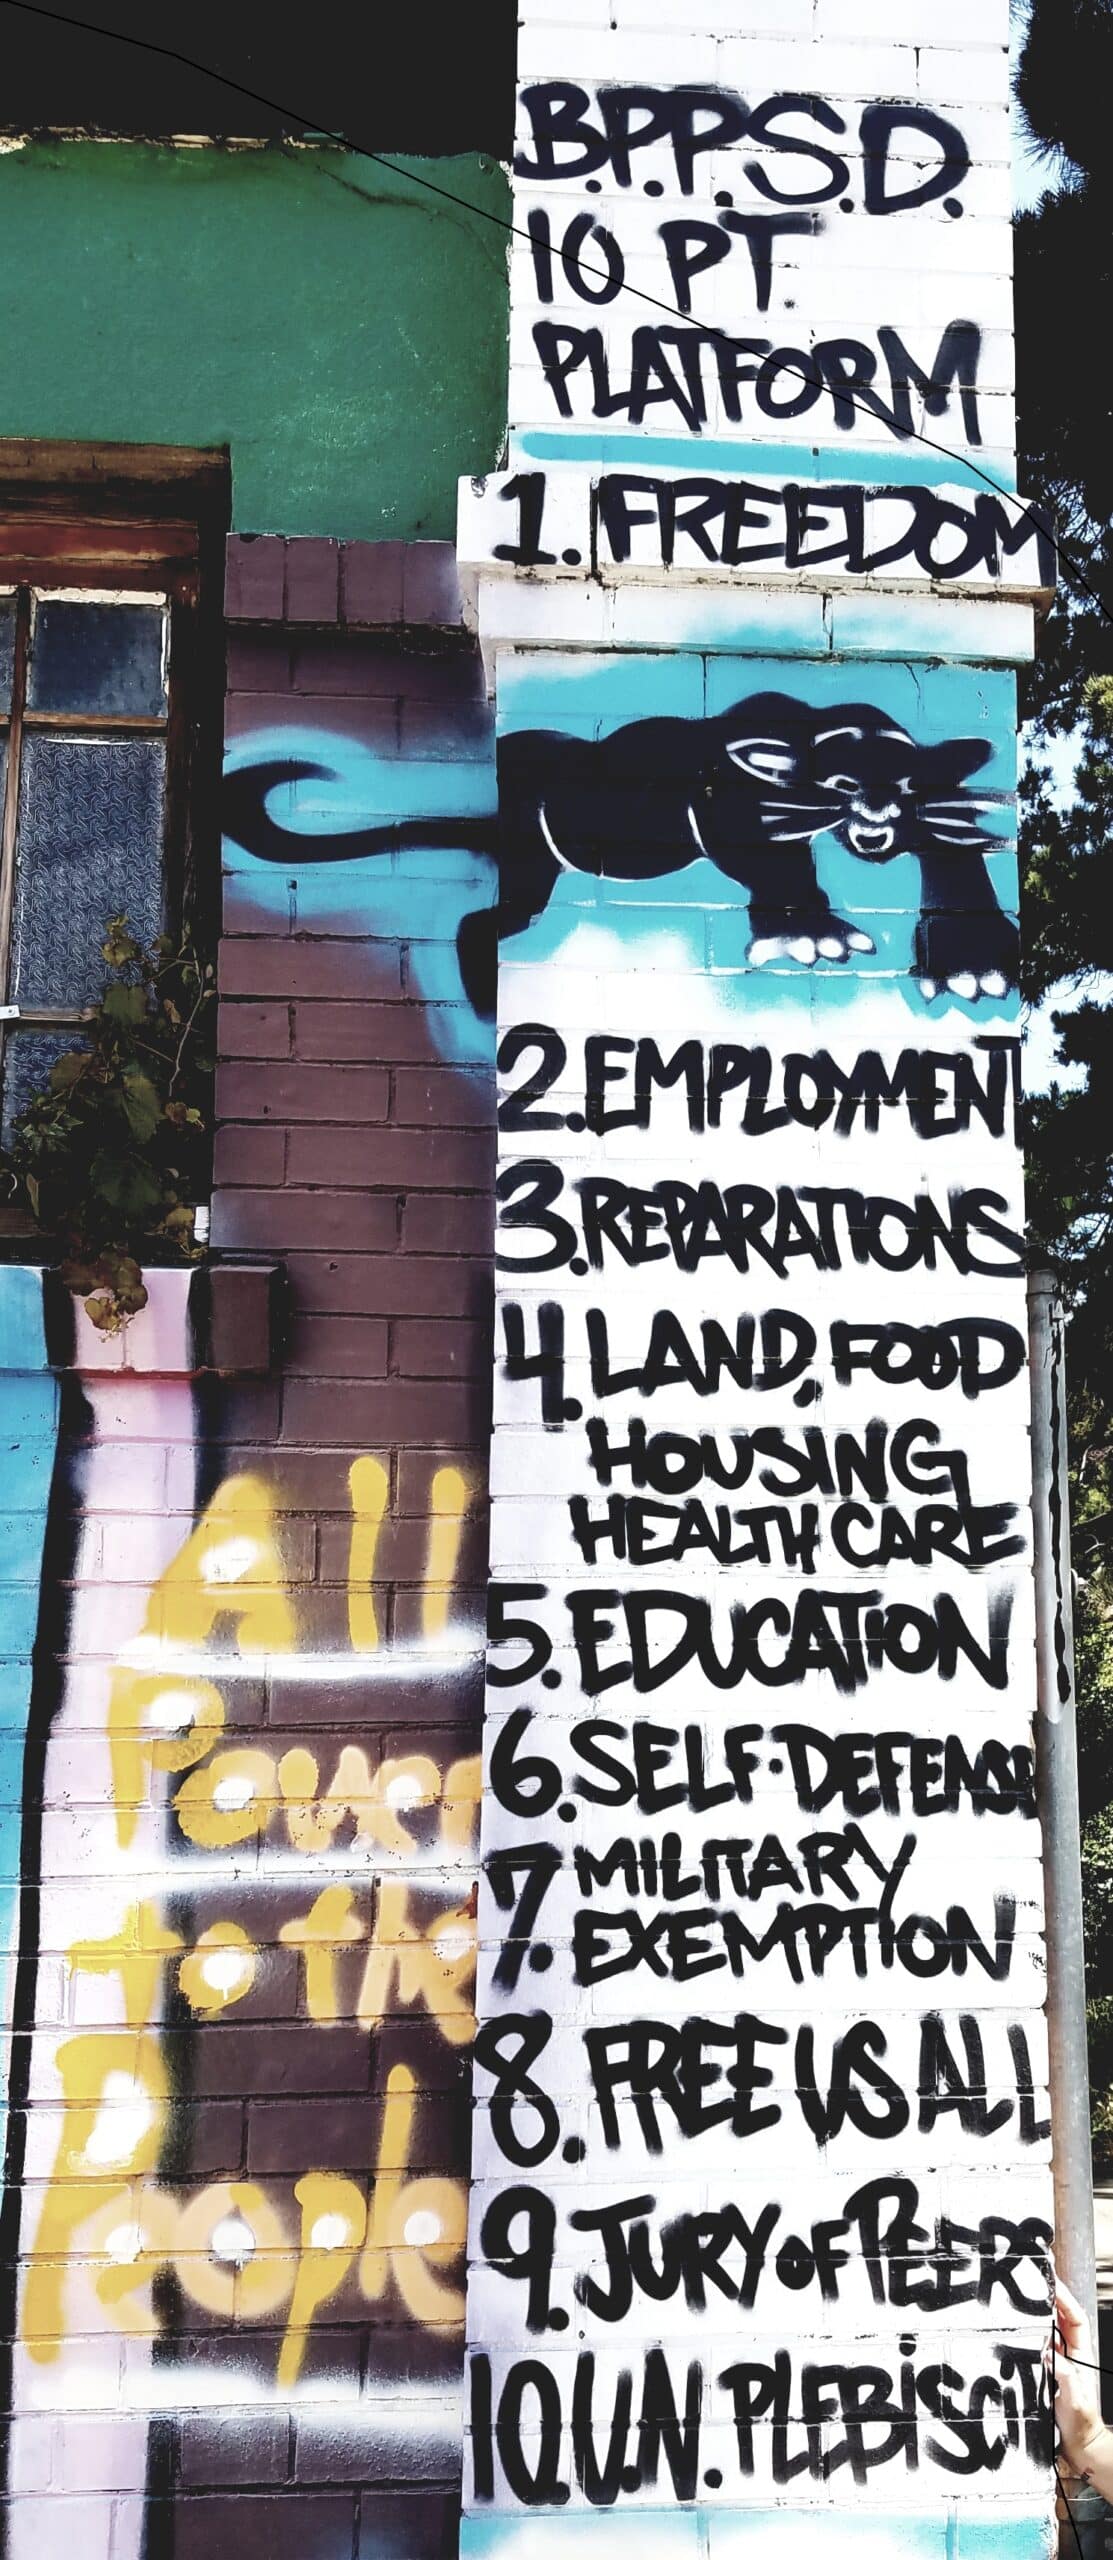 B.P.P.S.D.
10 PT.
PLATFORM
1. FREEDOM
2. EMPLOYMENT
3. REPARATIONS
4. LAND, FOOD
HOUSING
HEALTH CARE
5. EDUCATION
6. SELF-DEFENSE
7. MILITARY
EXEMPTION
8. FREE US ALL
9. JURY OF PEERS
10. U.N. PLEBISCITE
All
Power
to the
People